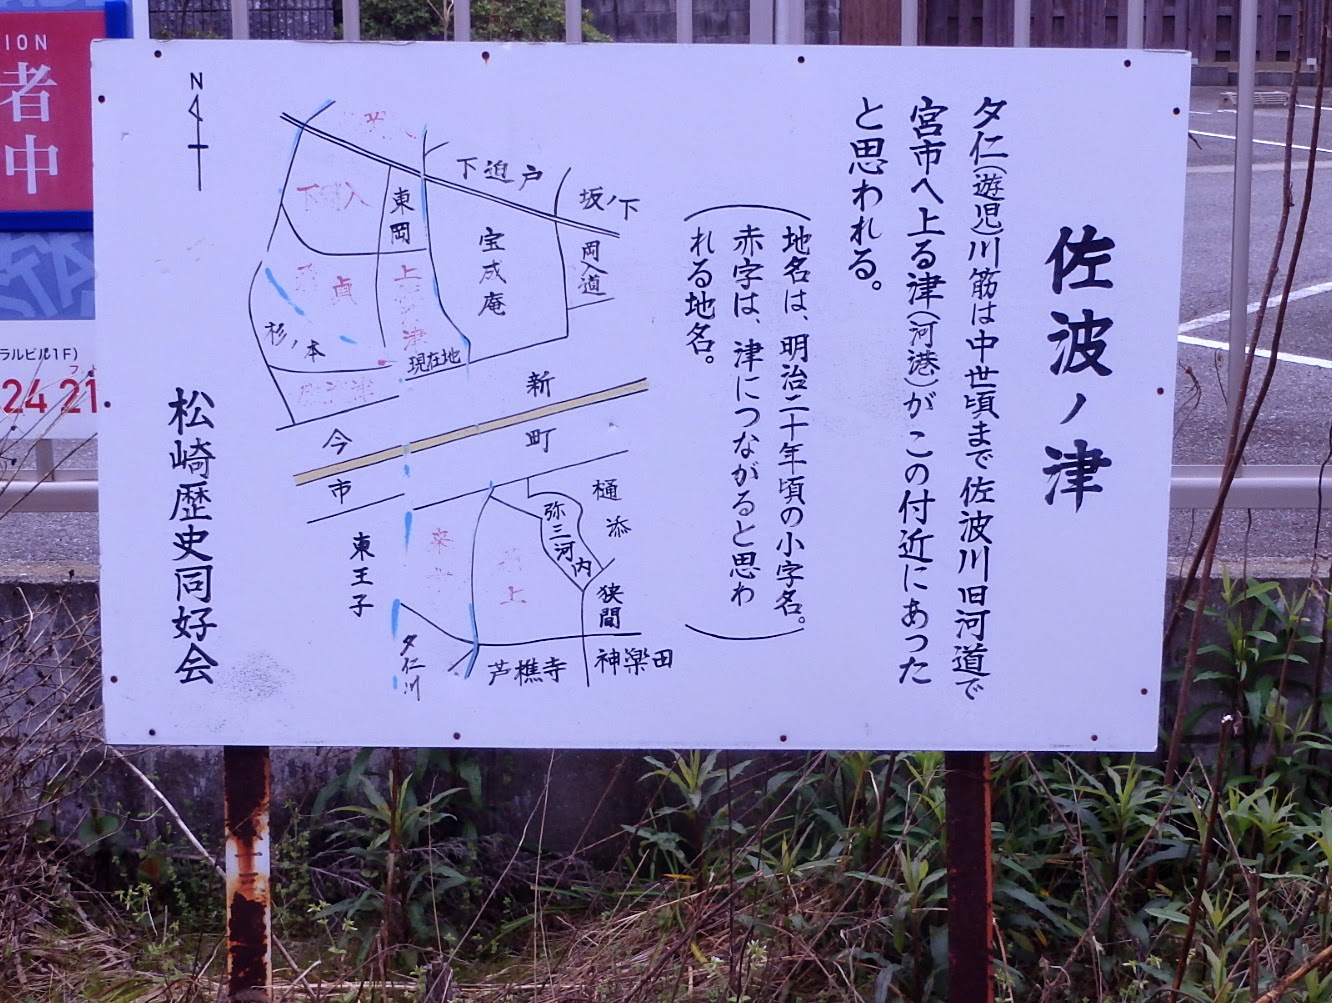 佐波ノ津
夕仁(遊児)川筋は中世頃まで佐波川旧河道で
宮市へ上る津(河港)がこの付近にあった
と思われる。
(地名は、明治二十年頃の小字名。
赤字は、津につながると思わ
れる地名。)
N
下迫戸
坂ノ下
岡入道
東岡
宝成庵
貞
上
津
杉ノ本
現在地
新町
今市
樋添
弥三河内
狭間
上
東王子
夕仁川
芦樵寺
神楽田
松崎歴史同好会
ION
者
中
ラルビル1F)
24 21
STA